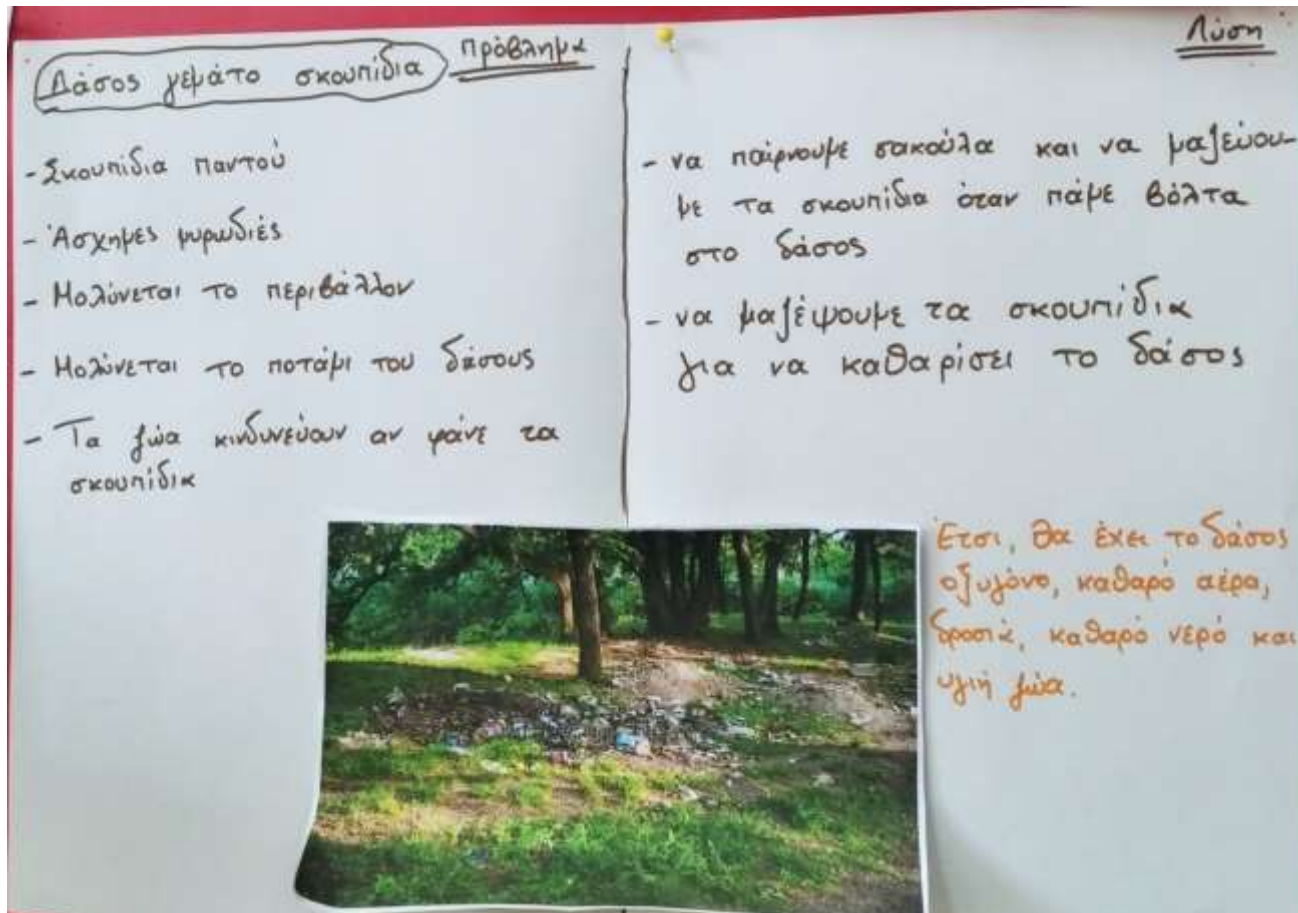 Δάσος γεμάτο σκουπίδια
Πρόβλημα
- Σκουπίδια παντού
- Άσχημες μυρωδιές
- Μολύνεται το περιβάλλον
- Μολύνεται το ποτάμι του δάσους
- Τα ζώα κινδυνεύουν αν φάνε τα
σκουπίδια
Λύση
- να παίρνουμε σακούλα και να μαζεύου-
με τα σκουπίδια όταν πάμε βόλτα
στο δάσος
- να μαζέψουμε τα σκουπίδια
για να καθαρίσει το δάσος
Έτσι, θα έχει το δάσος
οξυγόνο, καθαρό αέρα,
δροσιά, καθαρό νερό και
υγιή ζώα.